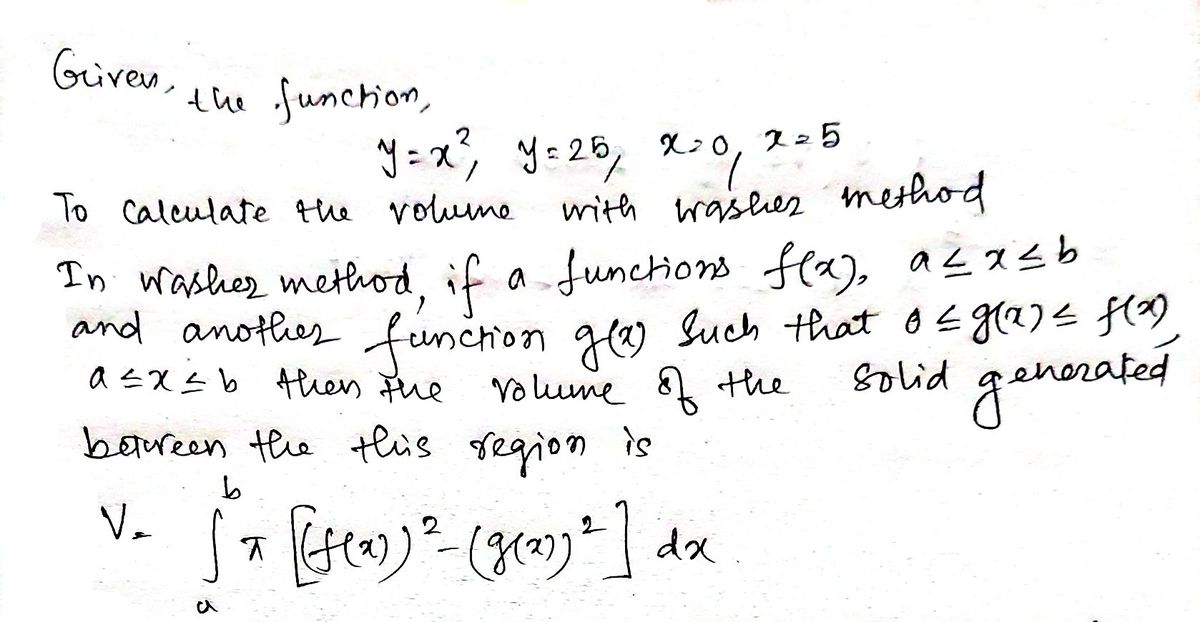 Given, the function,
y = x², y = 25, x = 0, x = 5
To calculate the volume with washer method
In washer method, if a functions f(x), a ≤ x ≤ b
and another function g(x) such that 0 ≤ g(x) ≤ f(x),
a ≤ x ≤ b then the volume of the solid generated
between the this region is
V = ∫ₐᵇ π [(f(x))² - (g(x))²] dx.